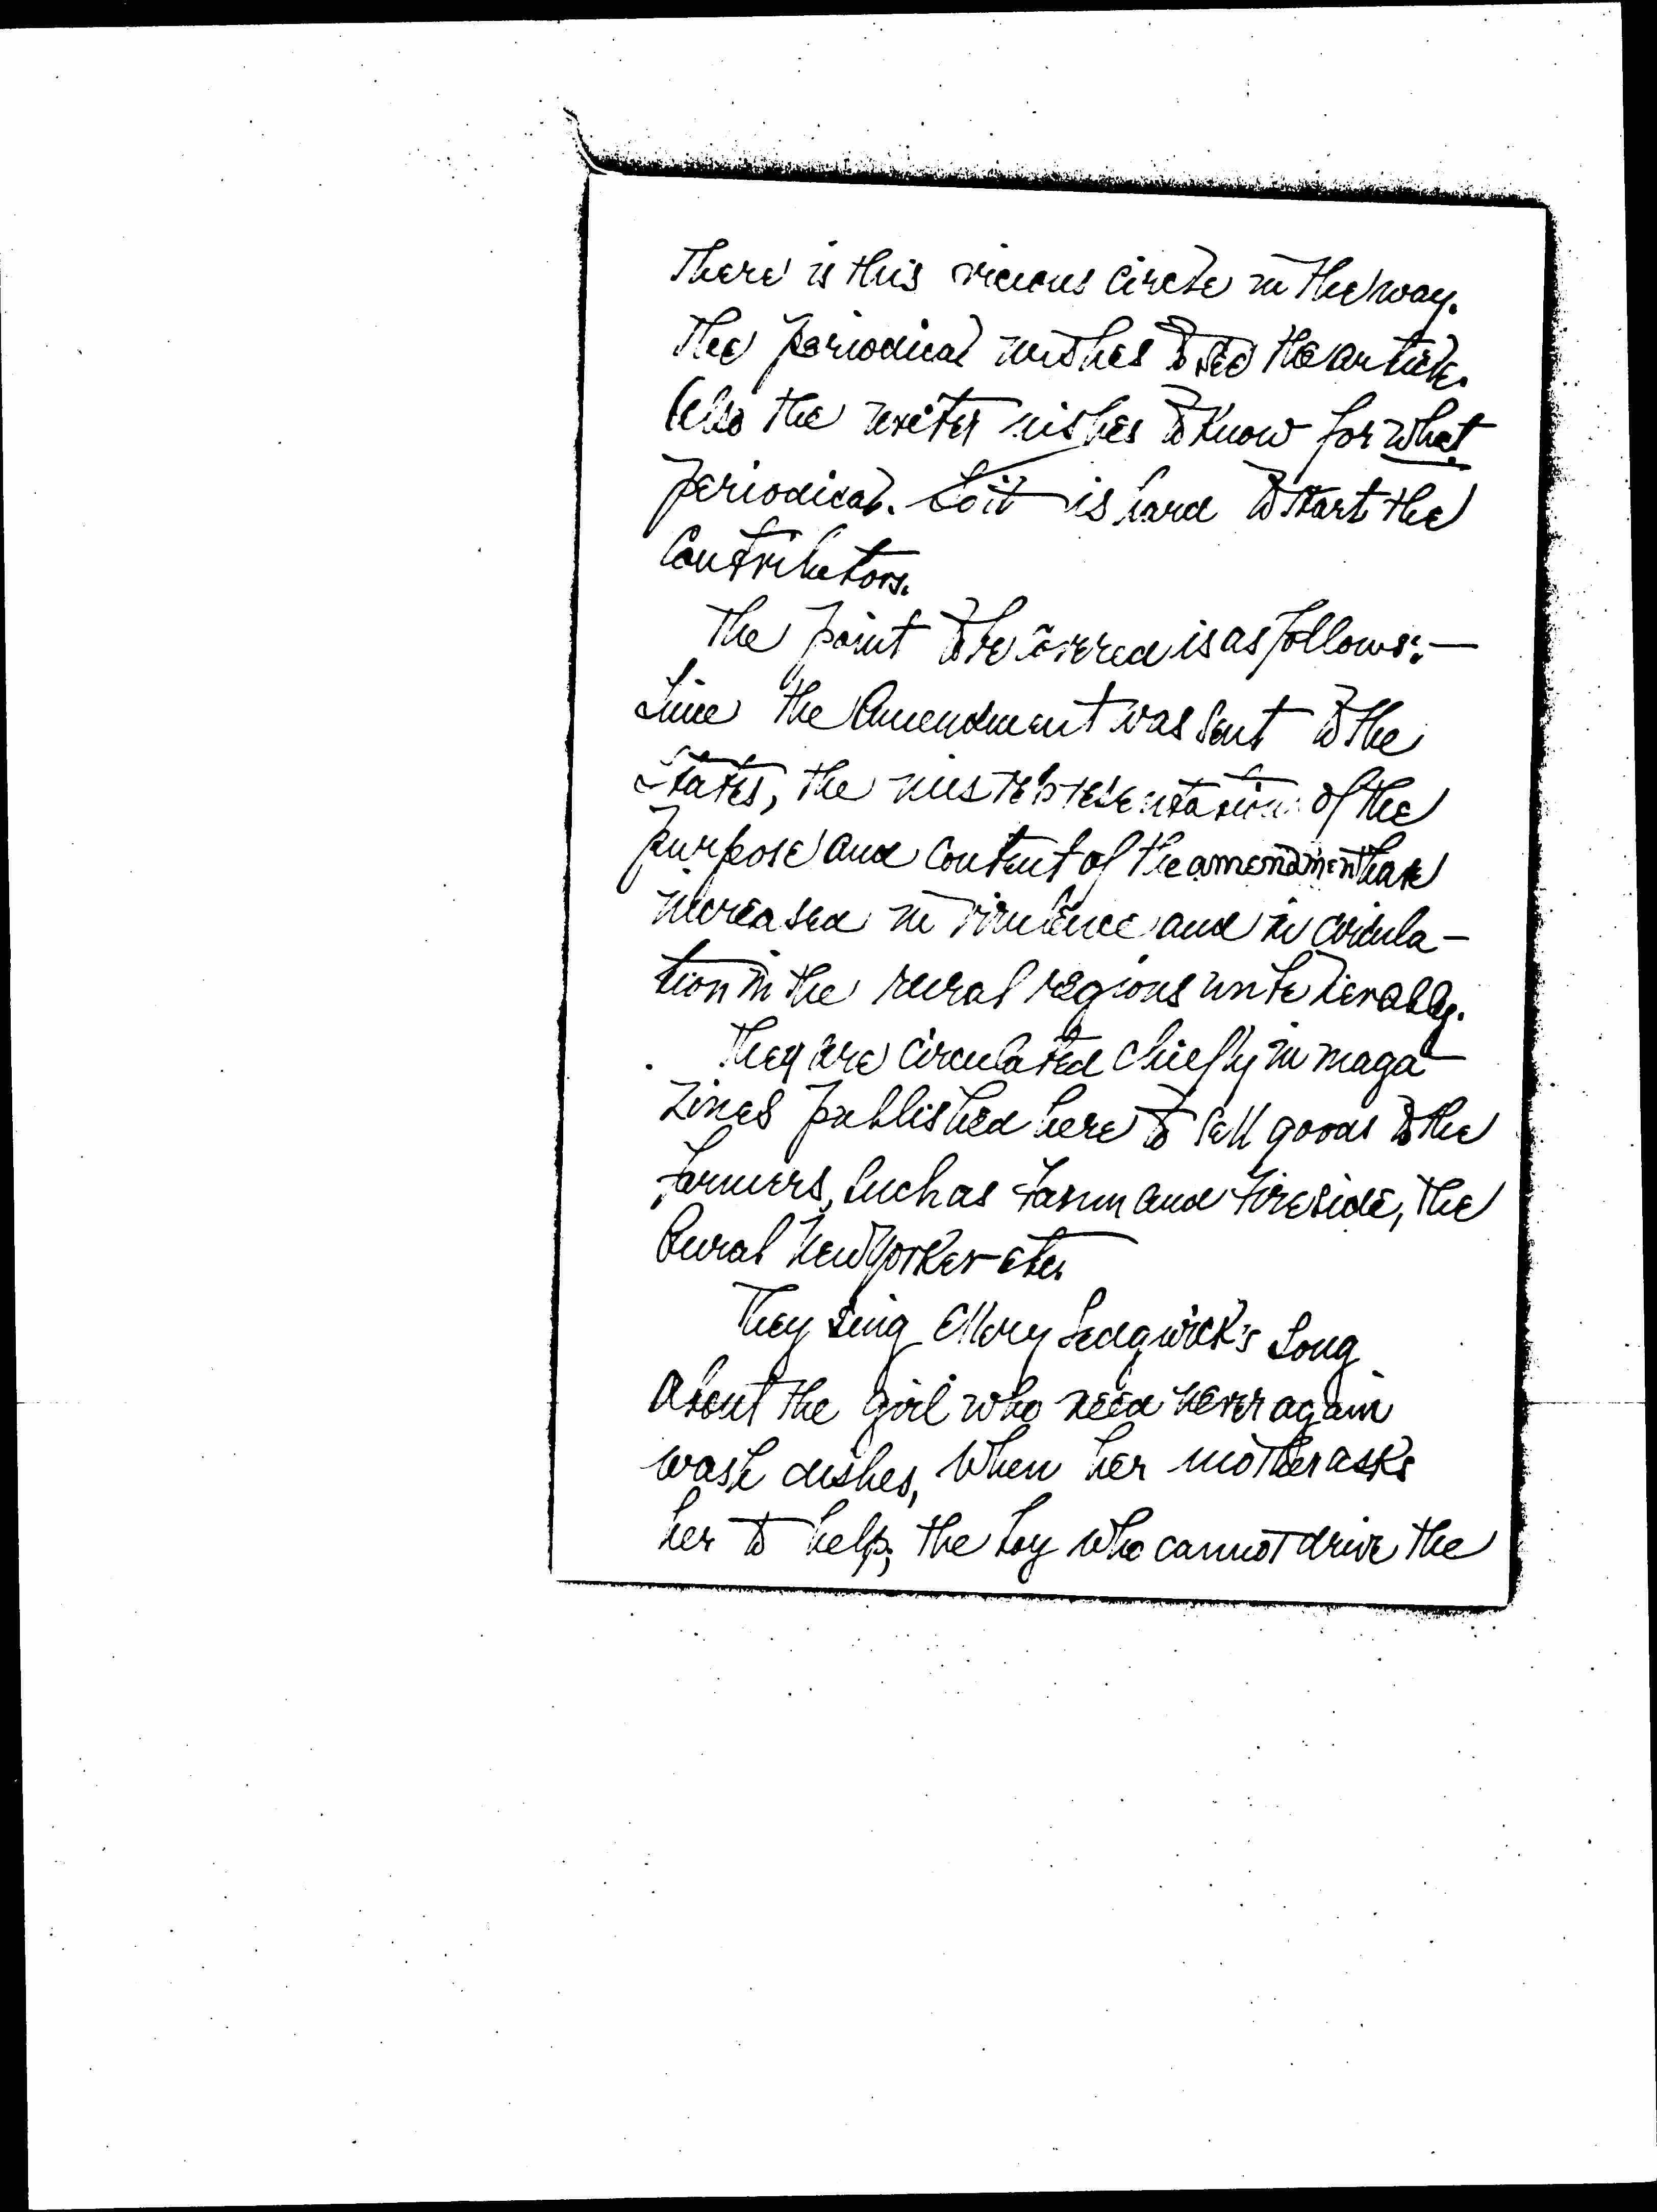 There is this vicious circle in the way.
The periodical wishes to see the article.
Also the writer wishes to know for what
periodical. So it is hard to start the
Contributors.
The point to be covered is as follows:—
Since the Amendment was sent to the
States, the misrepresentations of the
purpose and content of the amendment have
increased in virulence and in circula-
tion in the rural regions
They are circulated chiefly in maga-
zines published here to sell goods to the
farmers, such as Farm and Fireside, the
Rural New Yorker etc.
They sing Ellery Sedgwick's song
about the girl who need never again
wash dishes, when her mother asks
her to help; the boy who cannot drive the